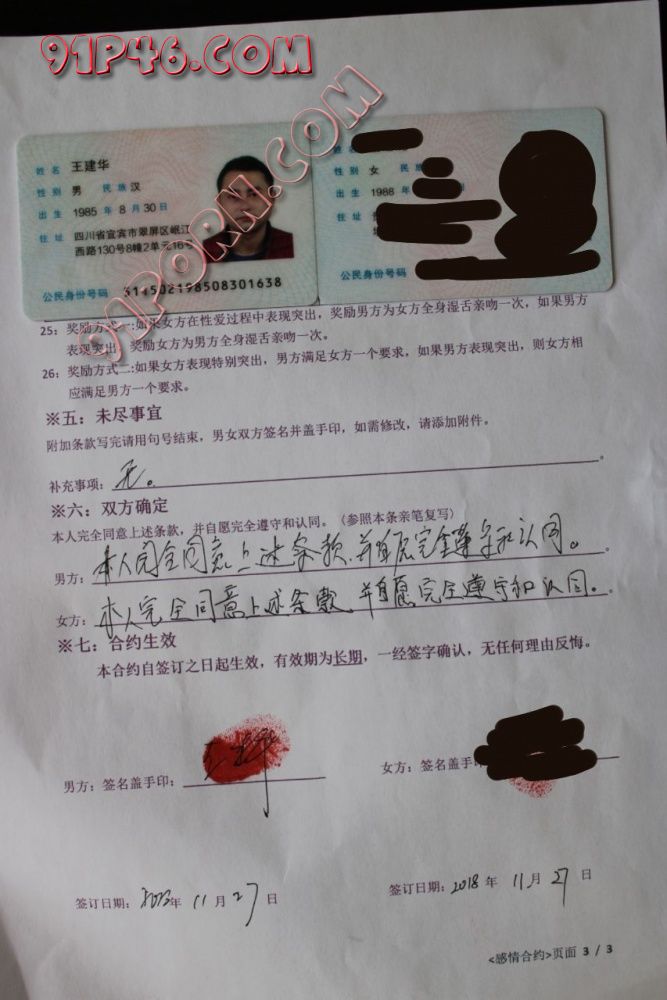 91P46.COM
91PORN.COM
姓名 王建华
性别 男 民族 汉
出生 1985 年 8 月 30 日
住址 四川省宜宾市翠屏区岷江
西路130号8幢2单元16号
公民身份号码 511502198508301638
姓名
性别 女 民族
出生 1988 年
住址
公民身份号码
25: 奖励方式一:如果女方在性爱过程中表现突出,奖励男方为女方全身湿舌亲吻一次,如果男方
表现突出,奖励女方为男方全身湿舌亲吻一次。
26: 奖励方式二:如果女方表现特别突出,男方满足女方一个要求,如果男方表现突出,则女方相
应满足男方一个要求。
※五:未尽事宜
附加条款写完请用句号结束,男女双方签名并盖手印,如需修改,请添加附件。
补充事项: 无。 。
※六:双方确定
本人完全同意上述条款,并自愿完全遵守和认同。(参照本条亲笔复写)
男方: 本人完全同意上述条款,并自愿完全遵守和认同。
女方: 本人完全同意上述条款,并自愿完全遵守和认同。
※七:合约生效
本合约自签订之日起生效,有效期为长期,一经签字确认,无任何理由反悔。
男方:签名盖手印:
女方:签名盖手印
签订日期: 年 11 月 27 日
签订日期: 2018 年 11 月 27 日
<感情合约>页面 3 / 3